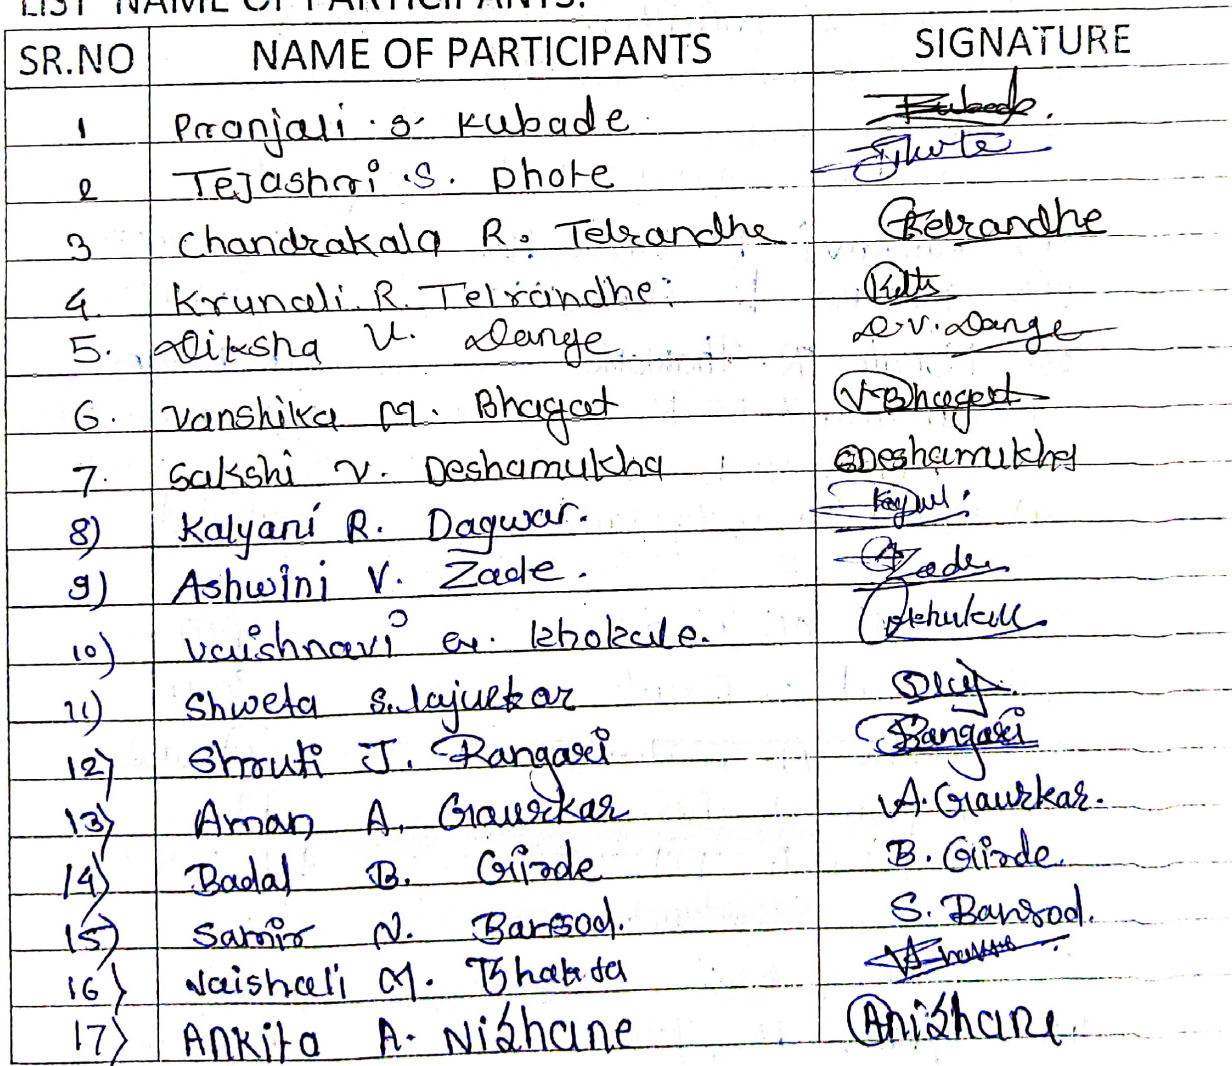 LIST NAME OF PARTICIPANTS:
SR.NO NAME OF PARTICIPANTS SIGNATURE
1 Pranjali S. Kubade Kubade.
2 Tejashri .S. Dhote Dhote
3 Chandrakala R. Telrandhe Telrandhe
4. Krunali R. Telrandhe
5. Diksha V. Dange D.V. Dange
6. Vanshika M. Bhagat V Bhagat
7. Sakshi V. Deshamukha SDeshamukha
8) Kalyani R. Dagwar.
9) Ashwini V. Zade. AZade
10) Vaishnavi khokale.
11) Shweta S. Lajurkar
12) Shruti J. Rangari Rangari
13) Aman A. Gaurkar A. Gaurkar.
14) Badal B. Girde B. Girde.
15) Samir N. Bansod. S. Bansod.
16) Vaishali M.
17) Ankita A. Nishane Anishane